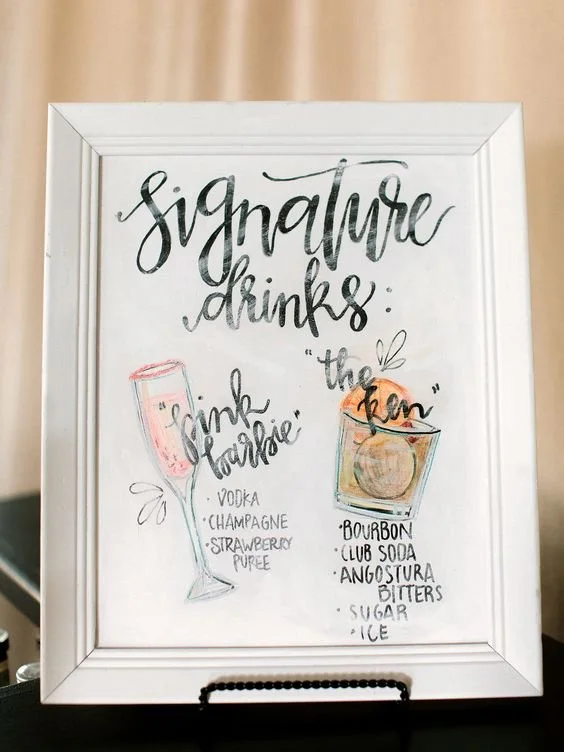 signature
drinks:
"pink
barbie"
· VODKA
· CHAMPAGNE
· STRAWBERRY
PUREE
"the
ken"
· BOURBON
· CLUB SODA
· ANGOSTURA
BITTERS
· SUGAR
· ICE